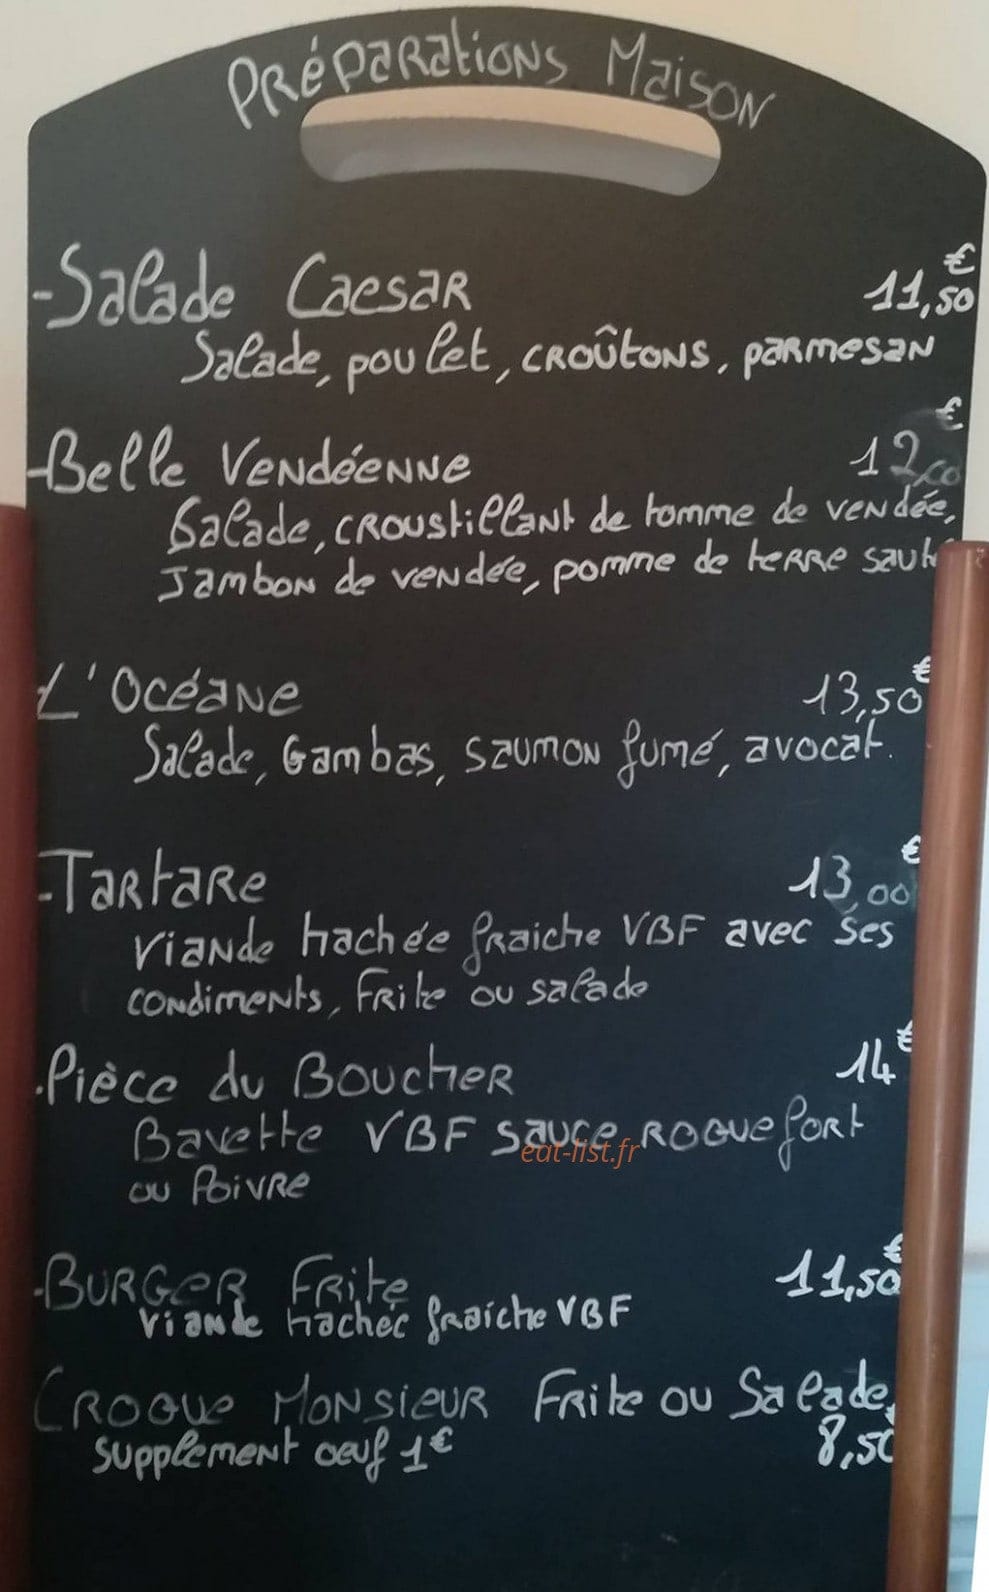 Préparations Maison
- Salade Caesar 11,50€
Salade, poulet, croûtons, parmesan
- Belle Vendéenne 12,00€
Salade, croustillant de tomme de vendée,
Jambon de vendée, pomme de terre sauté
L'Océane 13,50€
Salade, Gambas, saumon fumé, avocat.
- Tartare 13,00€
viande hachée fraiche VBF avec ses
condiments, Frite ou salade
. Pièce du Boucher 14€
Bavette VBF sauce roquefort
eat-list.fr
ou Poivre
- Burger Frite 11,50€
viande hachée fraiche VBF
Croque Monsieur Frite ou Salade,
supplement œuf 1€ 8,50